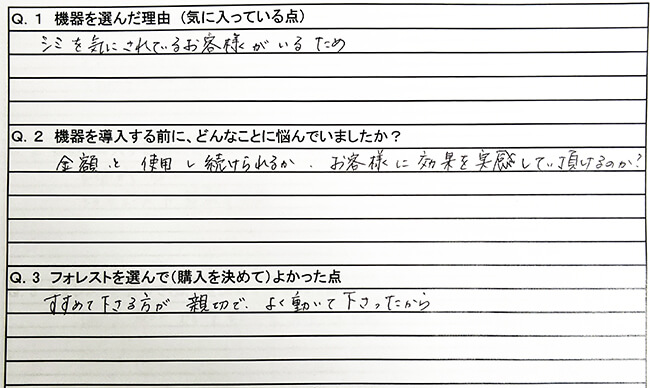 Q. 1 機器を選んだ理由（気に入っている点）
シミを気にされているお客様がいるため
Q. 2 機器を導入する前に、どんなことに悩んでいましたか？
金額と使用し続けられるか．お客様に効果を実感して頂けるのか？
Q. 3 フォレストを選んで（購入を決めて）よかった点
すすめて下さる方が親切で、よく動いて下さったから